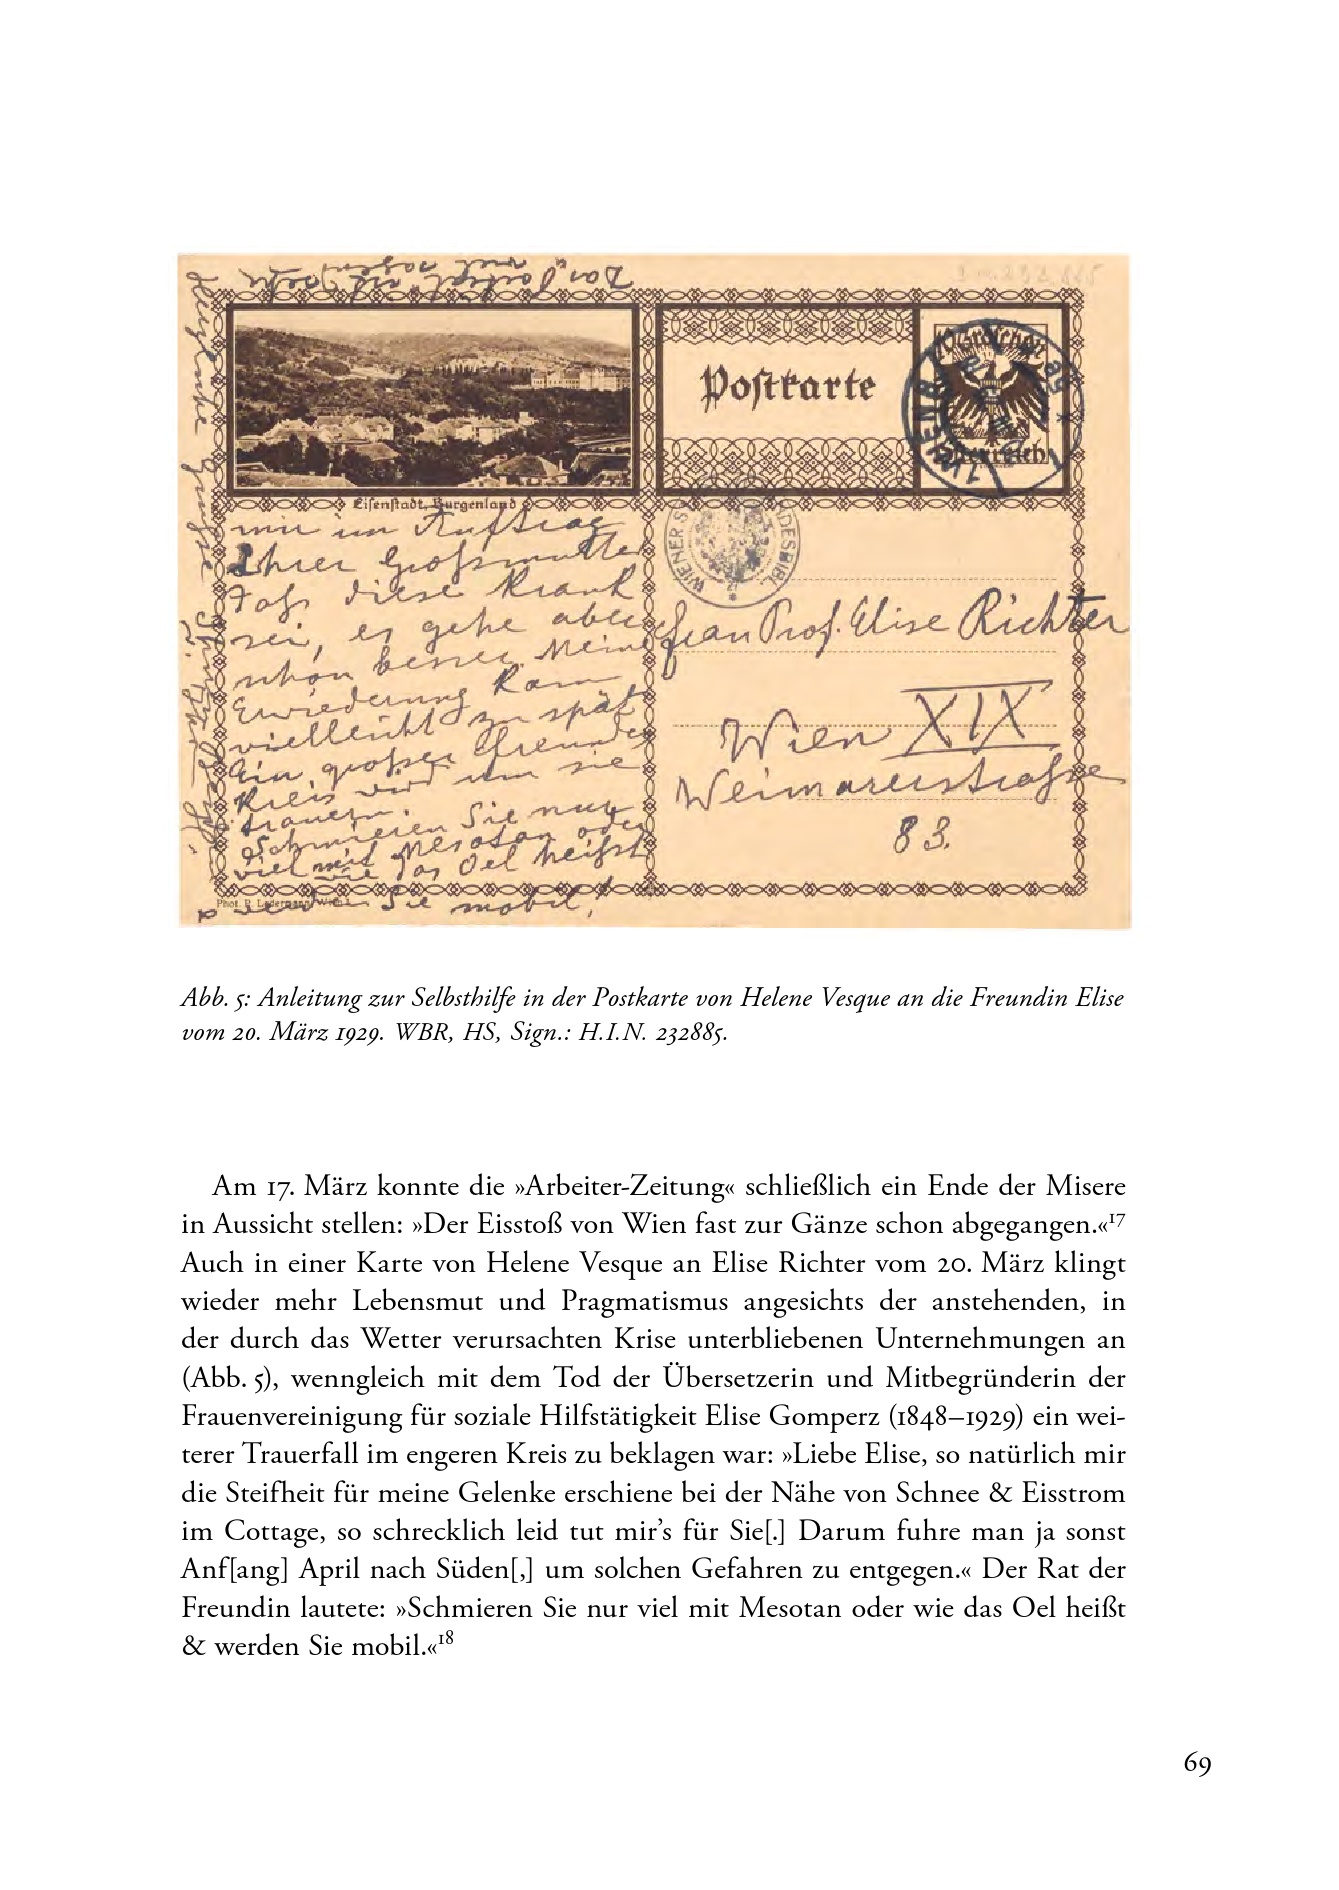 Postkarte
Eisenstadt, Burgenland
mir im Auftrag
Ihrer Großmutter
daß diese krank
sei, es gehe aber
schon besser. Meine
Erwiederung kam
vielleicht zu spät
Ein großer Freundes
Kreis wird um sie
trauern.
Schmieren Sie nur
viel mit Mesotan oder
wie das Oel heißt
& werden Sie mobil!
Phot. P. Ledermann, Wien I.
WIENER
DESBIBL.
Frau Prof. Elise Richter
Wien XIX
Weimarerstraße
83.
Abb. 5: Anleitung zur Selbsthilfe in der Postkarte von Helene Vesque an die Freundin Elise
vom 20. März 1929. WBR, HS, Sign.: H.I.N. 232885.
Am 17. März konnte die »Arbeiter-Zeitung« schließlich ein Ende der Misere
in Aussicht stellen: »Der Eisstoß von Wien fast zur Gänze schon abgegangen.«17
Auch in einer Karte von Helene Vesque an Elise Richter vom 20. März klingt
wieder mehr Lebensmut und Pragmatismus angesichts der anstehenden, in
der durch das Wetter verursachten Krise unterbliebenen Unternehmungen an
(Abb. 5), wenngleich mit dem Tod der Übersetzerin und Mitbegründerin der
Frauenvereinigung für soziale Hilfstätigkeit Elise Gomperz (1848–1929) ein wei-
terer Trauerfall im engeren Kreis zu beklagen war: »Liebe Elise, so natürlich mir
die Steifheit für meine Gelenke erschiene bei der Nähe von Schnee & Eisstrom
im Cottage, so schrecklich leid tut mir’s für Sie[.] Darum fuhre man ja sonst
Anf[ang] April nach Süden[,] um solchen Gefahren zu entgegen.« Der Rat der
Freundin lautete: »Schmieren Sie nur viel mit Mesotan oder wie das Oel heißt
& werden Sie mobil.«18
69